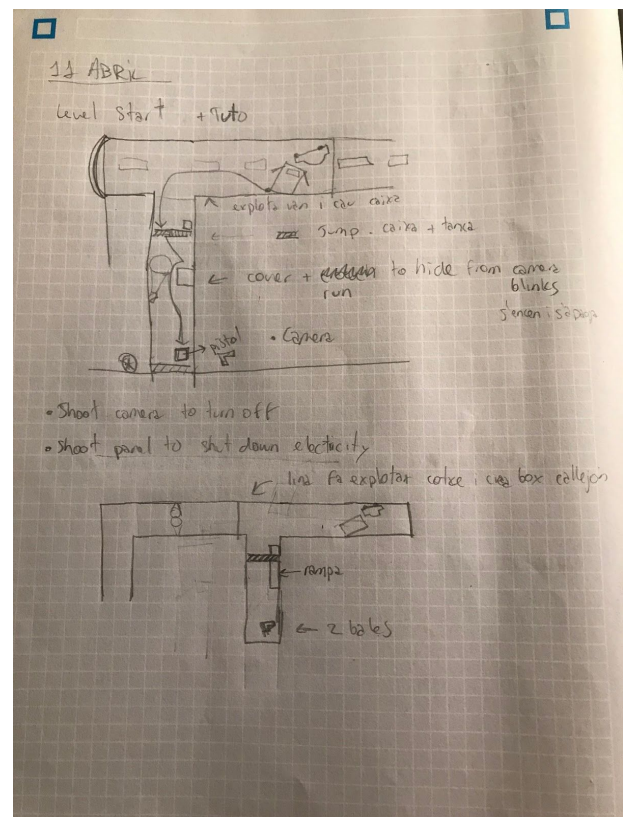 11 ABRIL
Level Start + Tuto
explota van i cau caixa
Jump. caixa + tanca
cover + to hide from camera
run
blinks
s'encen i s'
pistol
• Camera
• Shoot camera to turn off
• Shoot panel to shut down electucity
linia Fa explotar cotxe i box callejon
rampa
2 bales